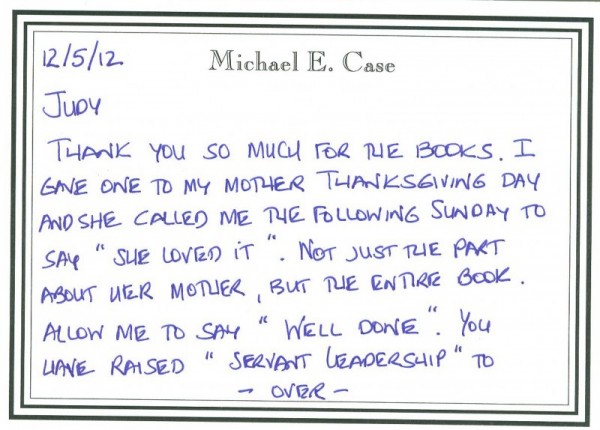 12/5/12
Michael E. Case
JUDY
THANK YOU SO MUCH FOR THE BOOKS. I
GAVE ONE TO MY MOTHER THANKSGIVING DAY
AND SHE CALLED ME THE FOLLOWING SUNDAY TO
SAY "SHE LOVED IT". NOT JUST THE PART
ABOUT HER MOTHER, BUT THE ENTIRE BOOK.
ALLOW ME TO SAY "WELL DONE". YOU
HAVE RAISED "SERVANT LEADERSHIP" TO
- OVER -